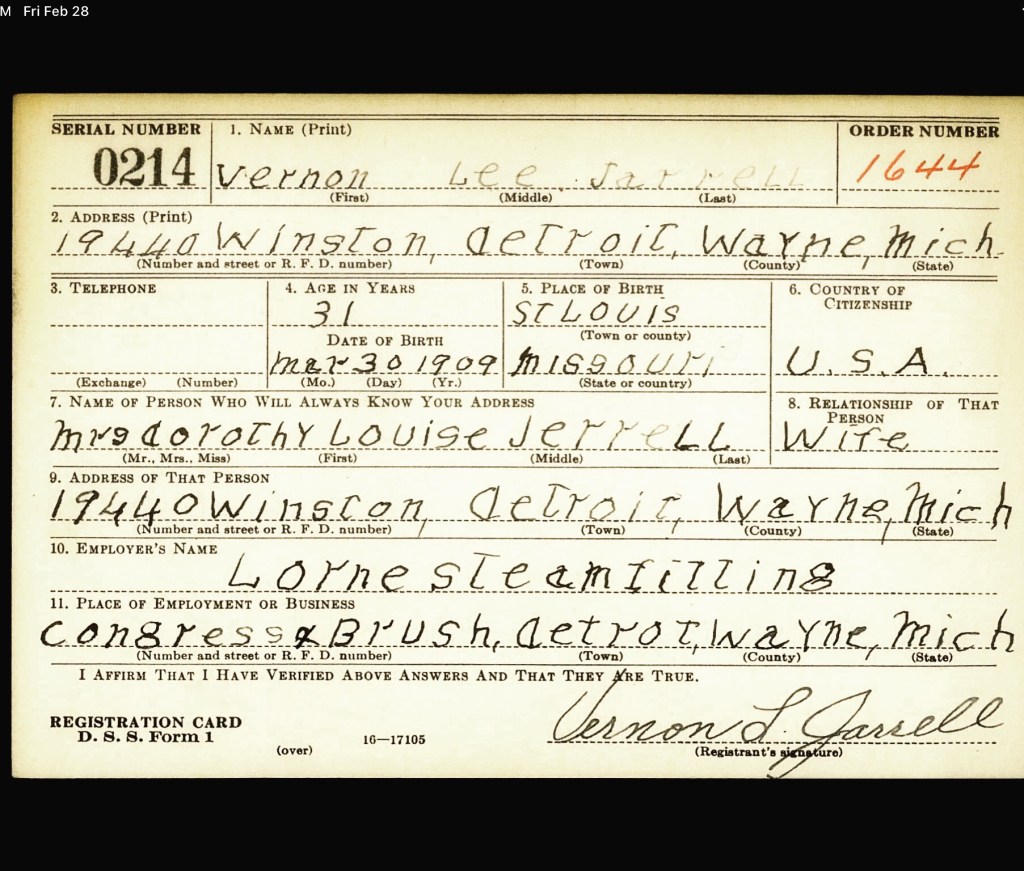 M Fri Feb 28
SERIAL NUMBER 1. NAME (Print) ORDER NUMBER
0214 Vernon Lee Jarrell 1644
(First) (Middle) (Last)
2. ADDRESS (Print)
19440 Winston, Detroit, Wayne, Mich.
(Number and street or R. F. D. number) (Town) (County) (State)
3. TELEPHONE 4. AGE IN YEARS 5. PLACE OF BIRTH 6. COUNTRY OF CITIZENSHIP
31 ST LOUIS
DATE OF BIRTH (Town or county)
Mar 30 1909 Missouri U.S.A.
(Exchange) (Number) (Mo.) (Day) (Yr.) (State or country)
7. NAME OF PERSON WHO WILL ALWAYS KNOW YOUR ADDRESS 8. RELATIONSHIP OF THAT PERSON
Mrs Dorothy Louise Jerrell Wife
(Mr., Mrs., Miss) (First) (Middle) (Last)
9. ADDRESS OF THAT PERSON
19440 Winston, Detroit, Wayne, Mich
(Number and street or R. F. D. number) (Town) (County) (State)
10. EMPLOYER'S NAME
Lorne Steamfitting
11. PLACE OF EMPLOYMENT OR BUSINESS
Congress & Brush, Detrot, Wayne, Mich
(Number and street or R. F. D. number) (Town) (County) (State)
I AFFIRM THAT I HAVE VERIFIED ABOVE ANSWERS AND THAT THEY ARE TRUE.
REGISTRATION CARD Vernon L. Jarrell
D. S. S. Form 1 (over) 16—17105 (Registrant's signature)